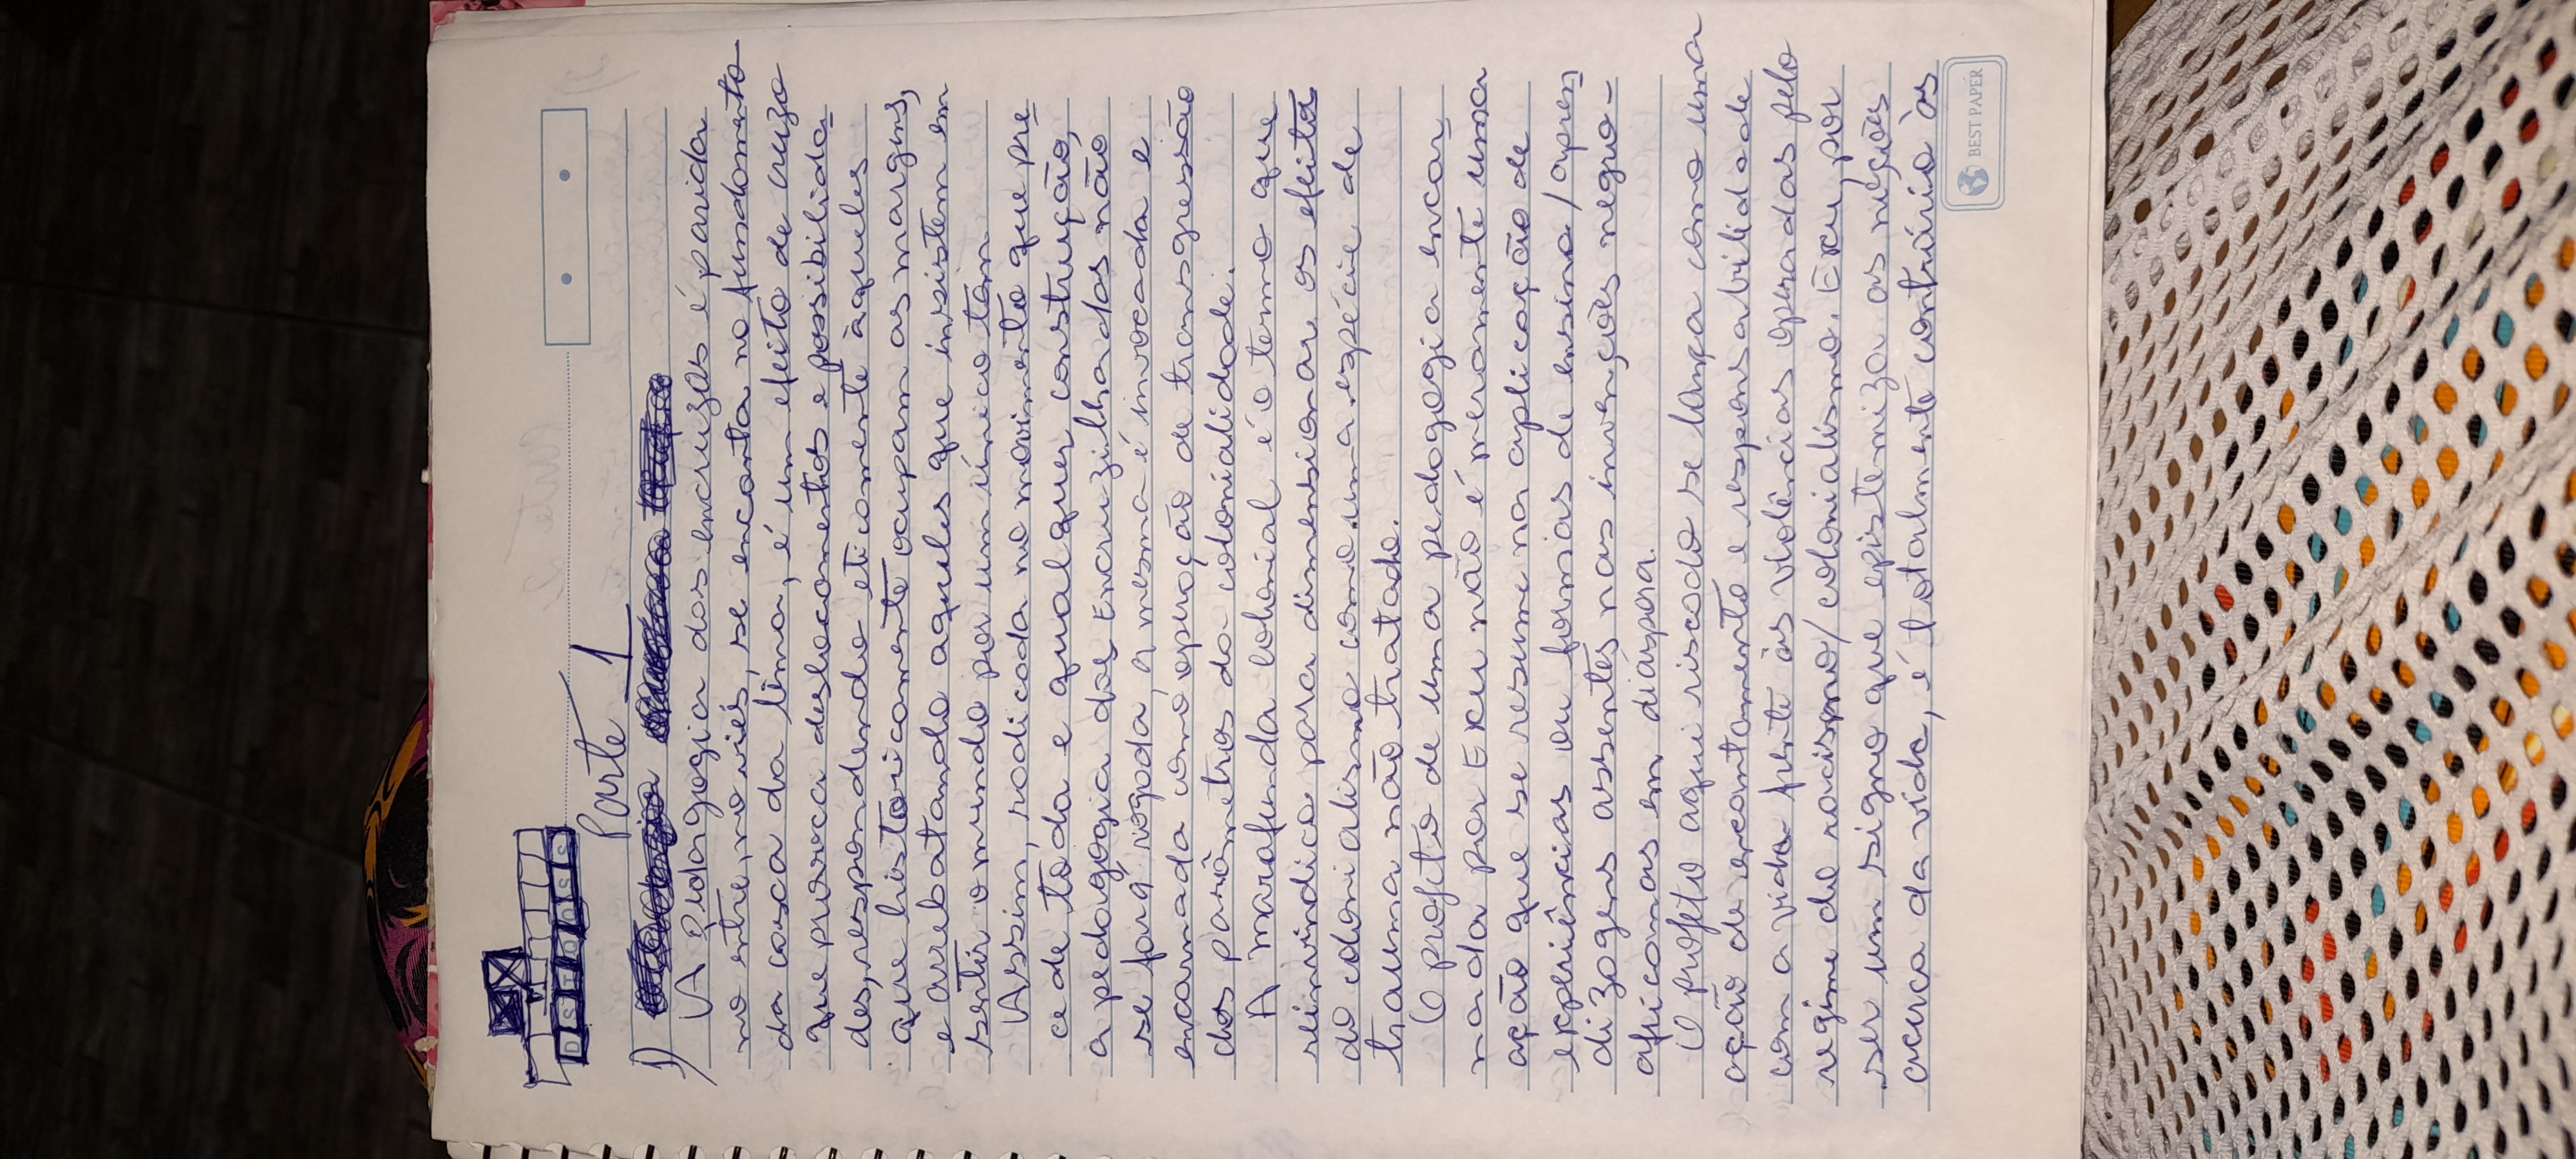 DSTQQSS
Parte 1
1)
A pedagogia das encruzas é parida
no entre, no viés, se encanta no fundamento
da casca da lima, é um efeito de cruzo
que provoca deslocamentos e possibilida
des, respondendo eticamente àqueles
que historicamente ocupam as margens,
e arrebatando aqueles que insistem em
sentir o mundo por um único tom
Assim, radicada no movimento que pre
cede toda e qualquer construção,
a pedagogia das Encruzilhadas não
se fará rogada, a mesma é invocada e
encarnada como operação de transgressão
dos parâmetros da colonialidade.
A marafunda colonial é o termo que
reinvindico para dimensionar os efeitos
do colonialismo como uma espécie de
trauma não tratado.
O projeto de uma pedagogia encar
nada por Exu não é meramente uma
ação que se resume na aplicação de
experiências ou formas de ensino/apren
dizagens assentes nas invenções negro-
africanas em diáspora.
O projeto aqui riscado se lança como uma
ação de encantamento e responsabilidade
com a vida frente às violências operadas pelo
regime do racismo/colonialismo. Exu, por
ser um signo que epistemiza as noções
acerca da vida, é totalmente contrário às
BEST PAPER